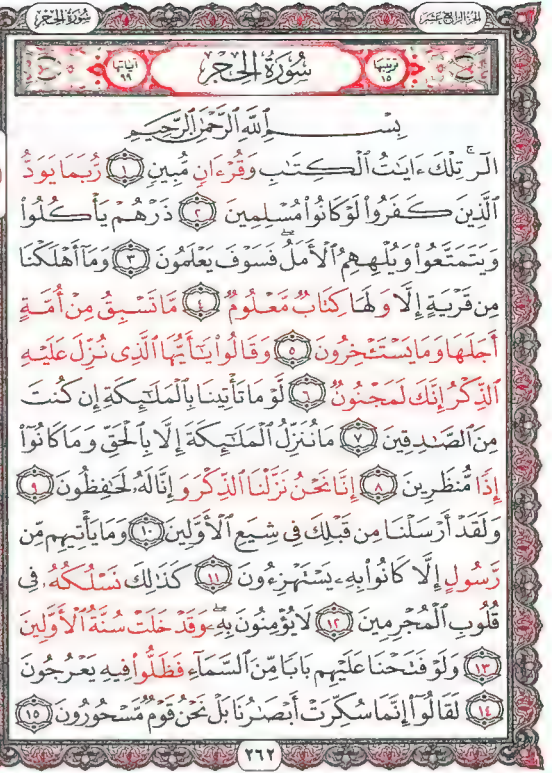 سُورَةُ الحِجْرِ
الجزء الرابع عشر
ترتيبها ١٥
سُورَةُ الحِجْرِ
آياتها ٩٩
بِسْمِ ٱللَّهِ ٱلرَّحْمَٰنِ ٱلرَّحِيمِ
الٓر ۚ تِلْكَ ءَايَٰتُ ٱلْكِتَٰبِ وَقُرْءَانٍ مُّبِينٍ ١ رُّبَمَا يَوَدُّ
ٱلَّذِينَ كَفَرُوا۟ لَوْ كَانُوا۟ مُسْلِمِينَ ٢ ذَرْهُمْ يَأْكُلُوا۟
وَيَتَمَتَّعُوا۟ وَيُلْهِهِمُ ٱلْأَمَلُ ۖ فَسَوْفَ يَعْلَمُونَ ٣ وَمَآ أَهْلَكْنَا
مِن قَرْيَةٍ إِلَّا وَلَهَا كِتَابٌ مَّعْلُومٌ ٤ مَّا تَسْبِقُ مِنْ أُمَّةٍ
أَجَلَهَا وَمَا يَسْتَـْٔخِرُونَ ٥ وَقَالُوا۟ يَٰٓأَيُّهَا ٱلَّذِى نُزِّلَ عَلَيْهِ
ٱلذِّكْرُ إِنَّكَ لَمَجْنُونٌ ٦ لَّوْ مَا تَأْتِينَا بِٱلْمَلَٰٓئِكَةِ إِن كُنتَ
مِنَ ٱلصَّٰدِقِينَ ٧ مَا نُنَزِّلُ ٱلْمَلَٰٓئِكَةَ إِلَّا بِٱلْحَقِّ وَمَا كَانُوٓا۟
إِذًا مُّنظَرِينَ ٨ إِنَّا نَحْنُ نَزَّلْنَا ٱلذِّكْرَ وَإِنَّا لَهُۥ لَحَٰفِظُونَ ٩
وَلَقَدْ أَرْسَلْنَا مِن قَبْلِكَ فِى شِيَعِ ٱلْأَوَّلِينَ ١٠ وَمَا يَأْتِيهِم مِّن
رَّسُولٍ إِلَّا كَانُوا۟ بِهِۦ يَسْتَهْزِءُونَ ١١ كَذَٰلِكَ نَسْلُكُهُۥ فِى
قُلُوبِ ٱلْمُجْرِمِينَ ١٢ لَا يُؤْمِنُونَ بِهِۦ ۖ وَقَدْ خَلَتْ سُنَّةُ ٱلْأَوَّلِينَ
١٣ وَلَوْ فَتَحْنَا عَلَيْهِم بَابًا مِّنَ ٱلسَّمَآءِ فَظَلُّوا۟ فِيهِ يَعْرُجُونَ
١٤ لَقَالُوٓا۟ إِنَّمَا سُكِّرَتْ أَبْصَٰرُنَا بَلْ نَحْنُ قَوْمٌ مَّسْحُورُونَ ١٥
٢٦٢